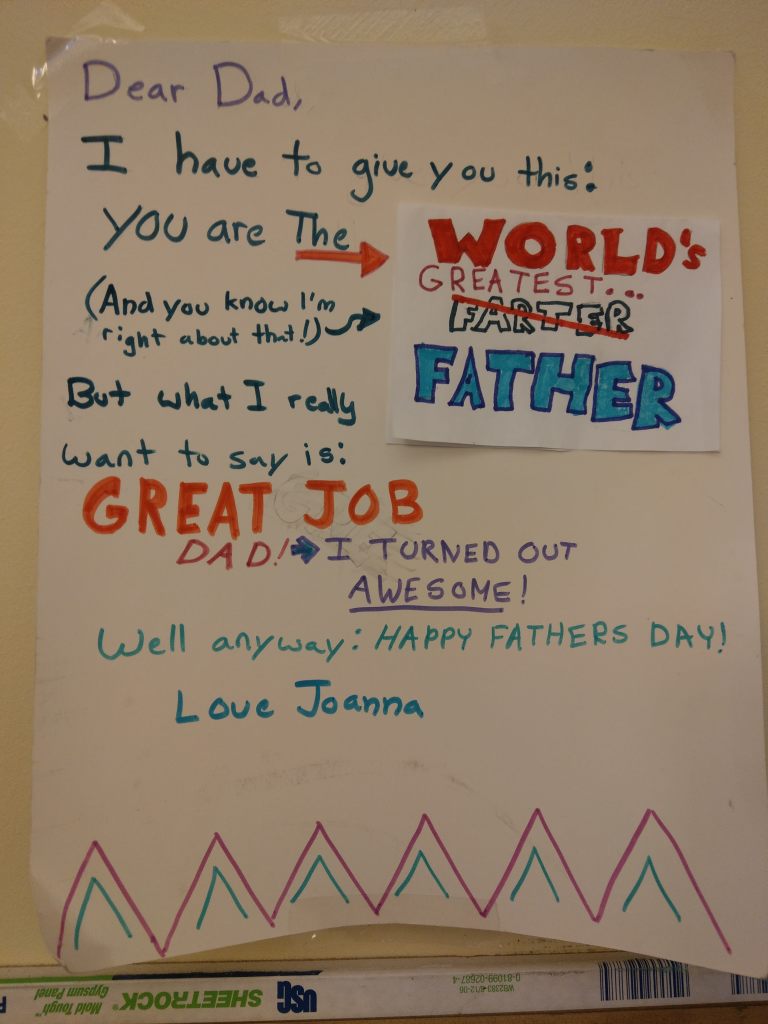 Dear Dad,
I have to give you this:
YOU are The
WORLD's
GREATEST...
FARTER
FATHER
(And you know I'm
right about that!)
But what I really
want to say is:
GREAT JOB
DAD! I TURNED OUT
AWESOME!
Well anyway: HAPPY FATHERS DAY!
Love Joanna
USG SHEETROCK® Mold Tough™
Gypsum Panel
WB2383-8/12-06
0-81099-02687-4